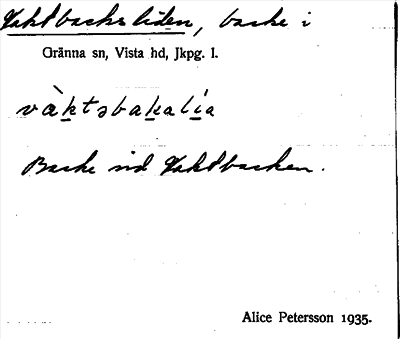 Vaktbacksliden, backe i
Gränna sn, Vista hd, Jkpg. l.
vàktsbakalía
Backe vid Vaktbacken.
Alice Petersson 1935.